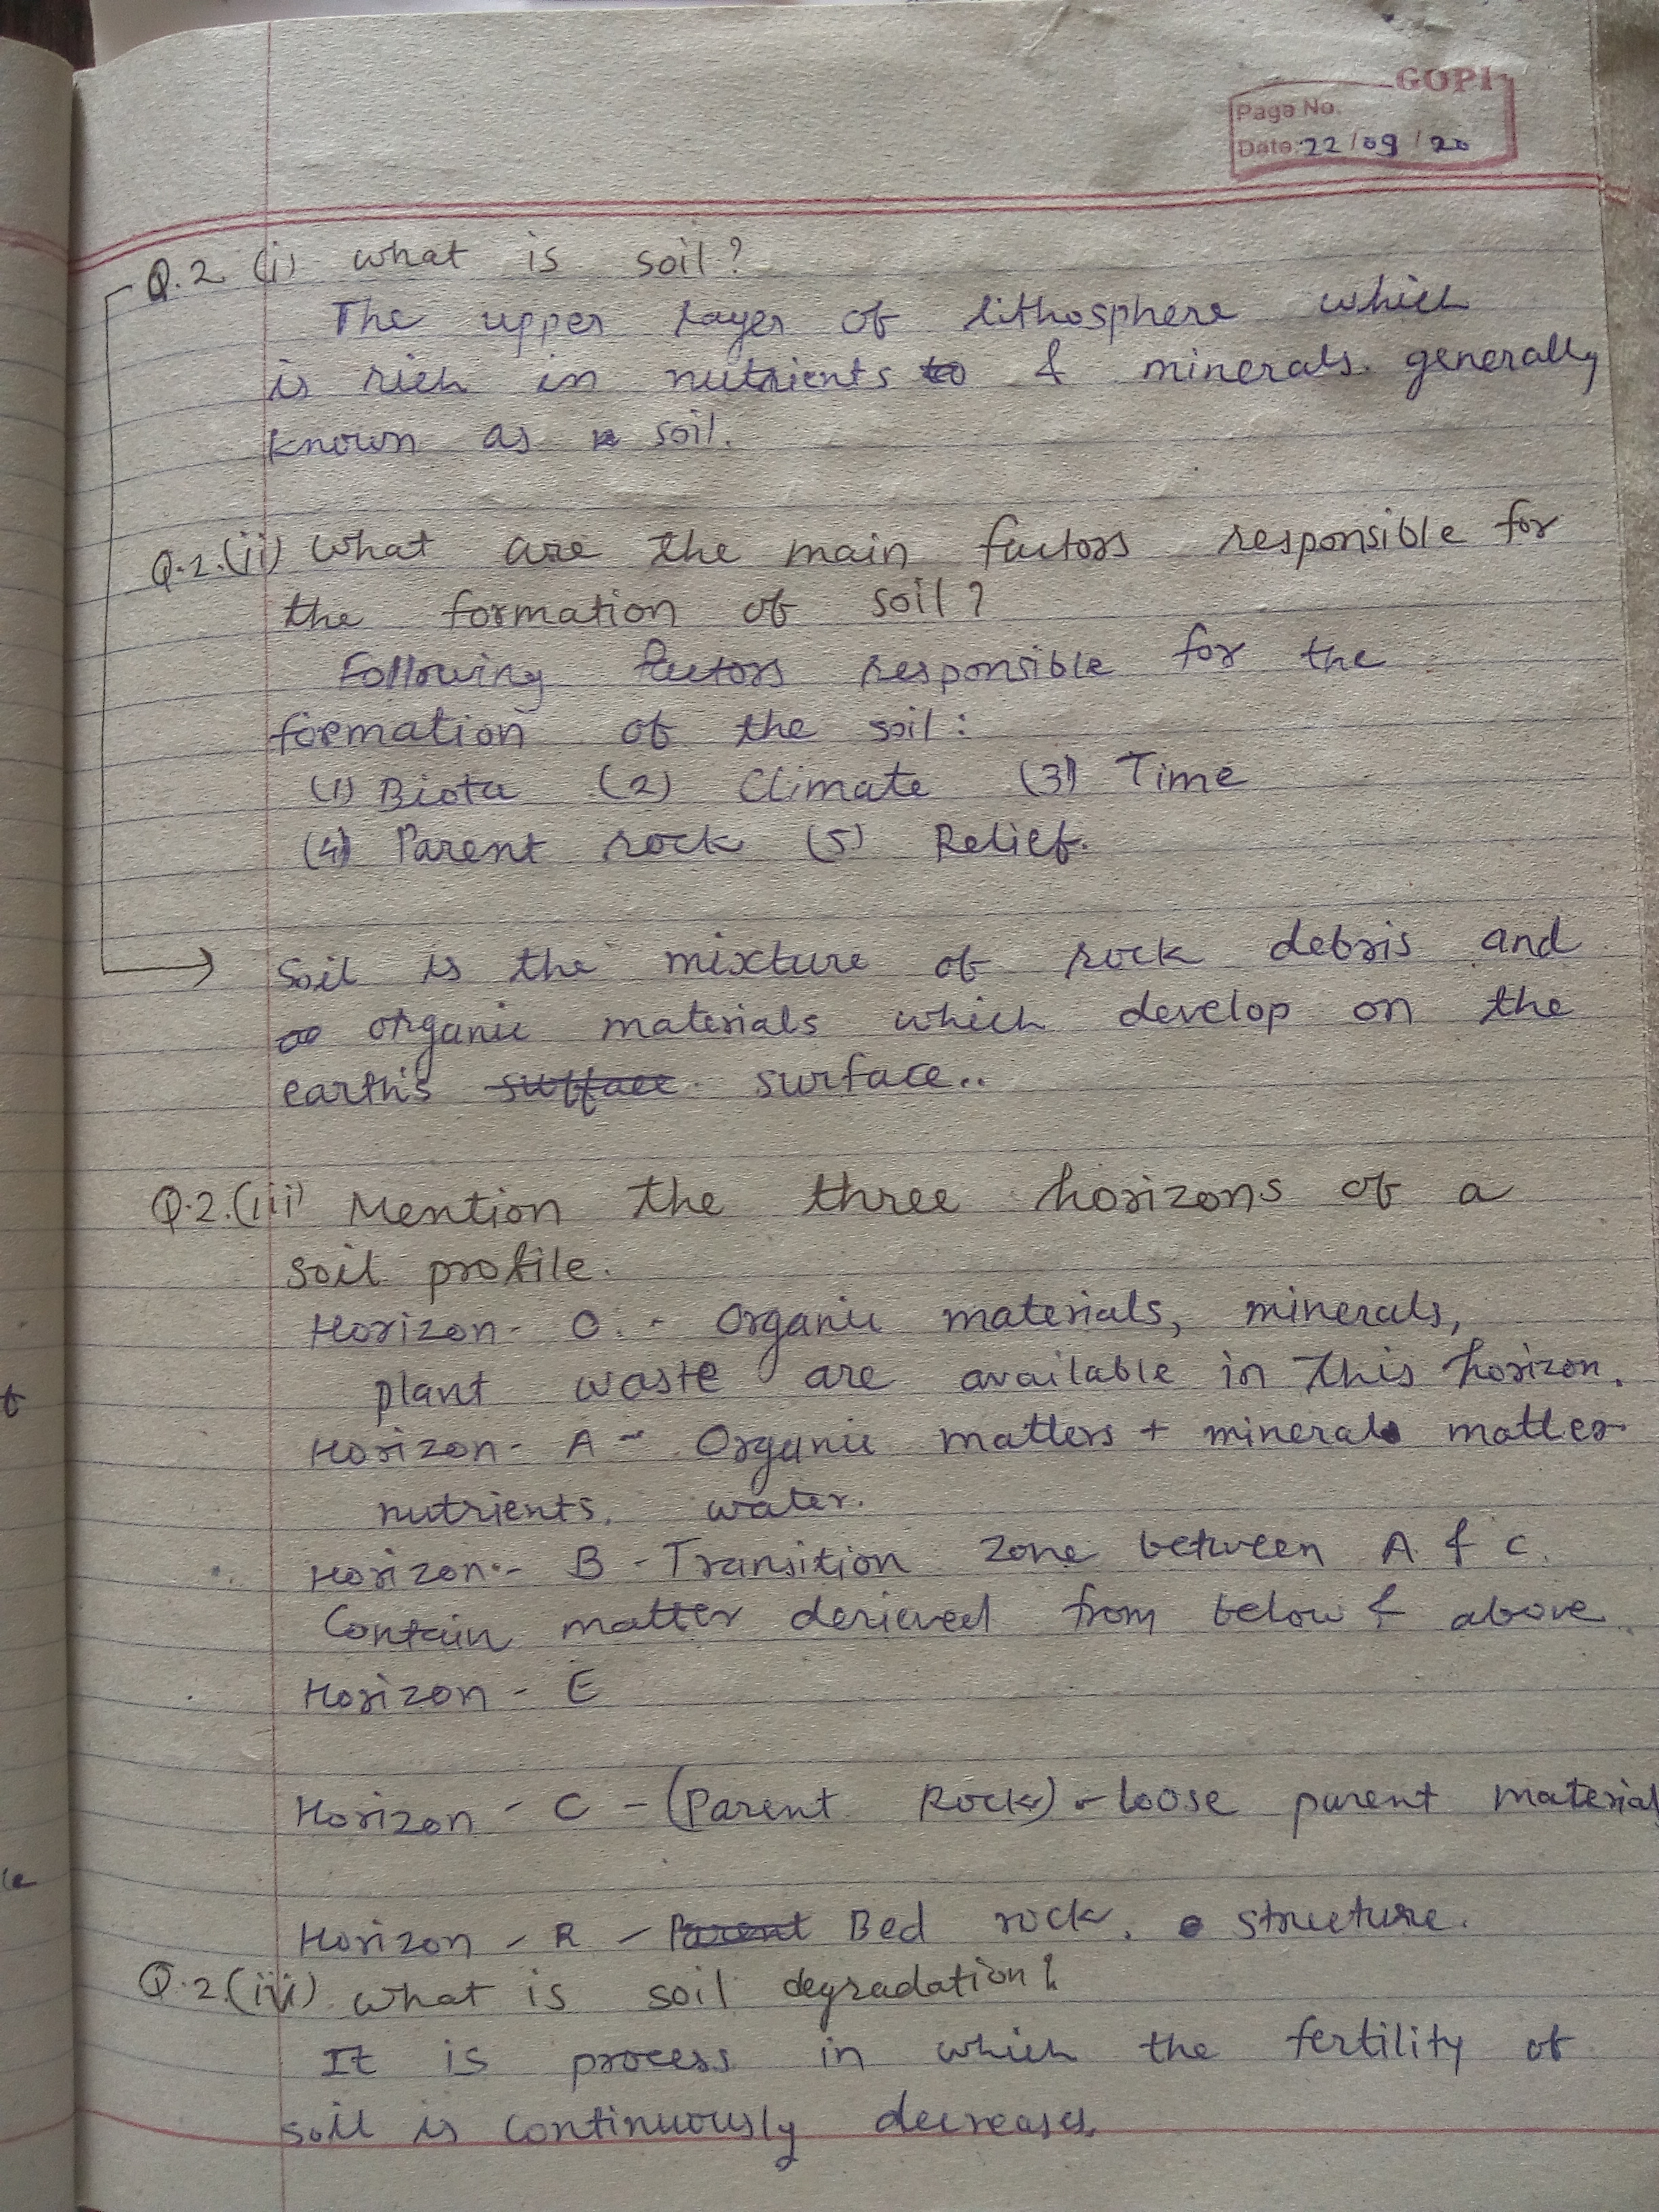 GOPI
Page No.
Date: 22/09/20
Q.2 (i) what is soil?
The upper layer of lithosphere which
is rich in nutrients & minerals. generally
known as soil.
Q.2.(ii) What are the main factors responsible for
the formation of soil?
Following factors responsible for the
formation of the soil:
(1) Biota (2) Climate (3) Time
(4) Parent rock (5) Relief.
Soil is the mixture of rock debris and
organic materials which develop on the
earth's surface surface..
Q.2.(iii) Mention the three horizons of a
soil profile.
Horizon - O. - Organic materials, minerals,
plant waste are available in this horizon.
Horizon - A - Organic matters + mineral matter
nutrients, water.
Horizon - B - Transition zone between A & C.
Contain matter derieved from below & above
Horizon - E
Horizon - C - (Parent Rock) - loose parent material
Horizon - R - Parent Bed rock. structure.
Q.2.(iv) what is soil degradation?
It is process in which the fertility of
soil is continuously decreases.